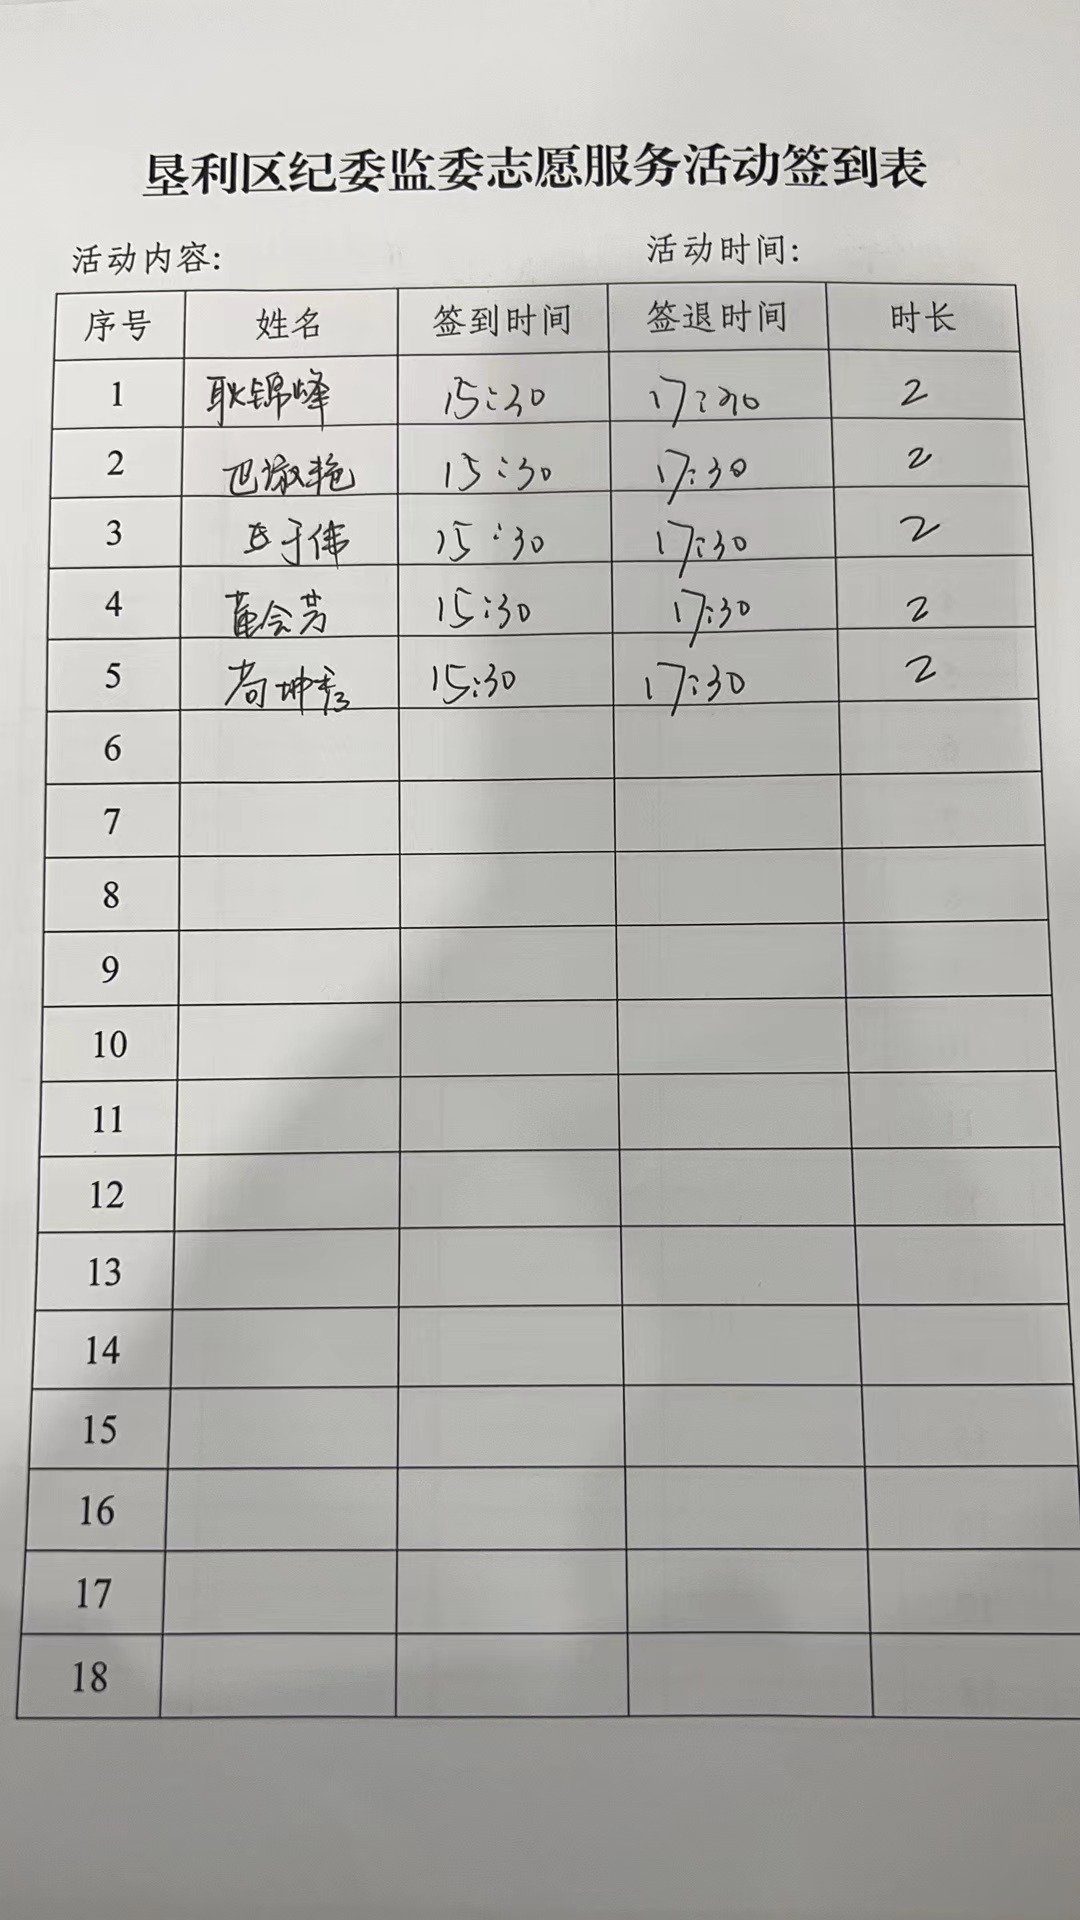 垦利区纪委监委志愿服务活动签到表
活动内容: 活动时间:
序号 姓名 签到时间 签退时间 时长
1 耿锦峰 15:30 17:30 2
2 巴淑艳 15:30 17:30 2
3 于伟 15:30 17:30 2
4 董会芳 15:30 17:30 2
5 苟坤秀 15:30 17:30 2
6
7
8
9
10
11
12
13
14
15
16
17
18